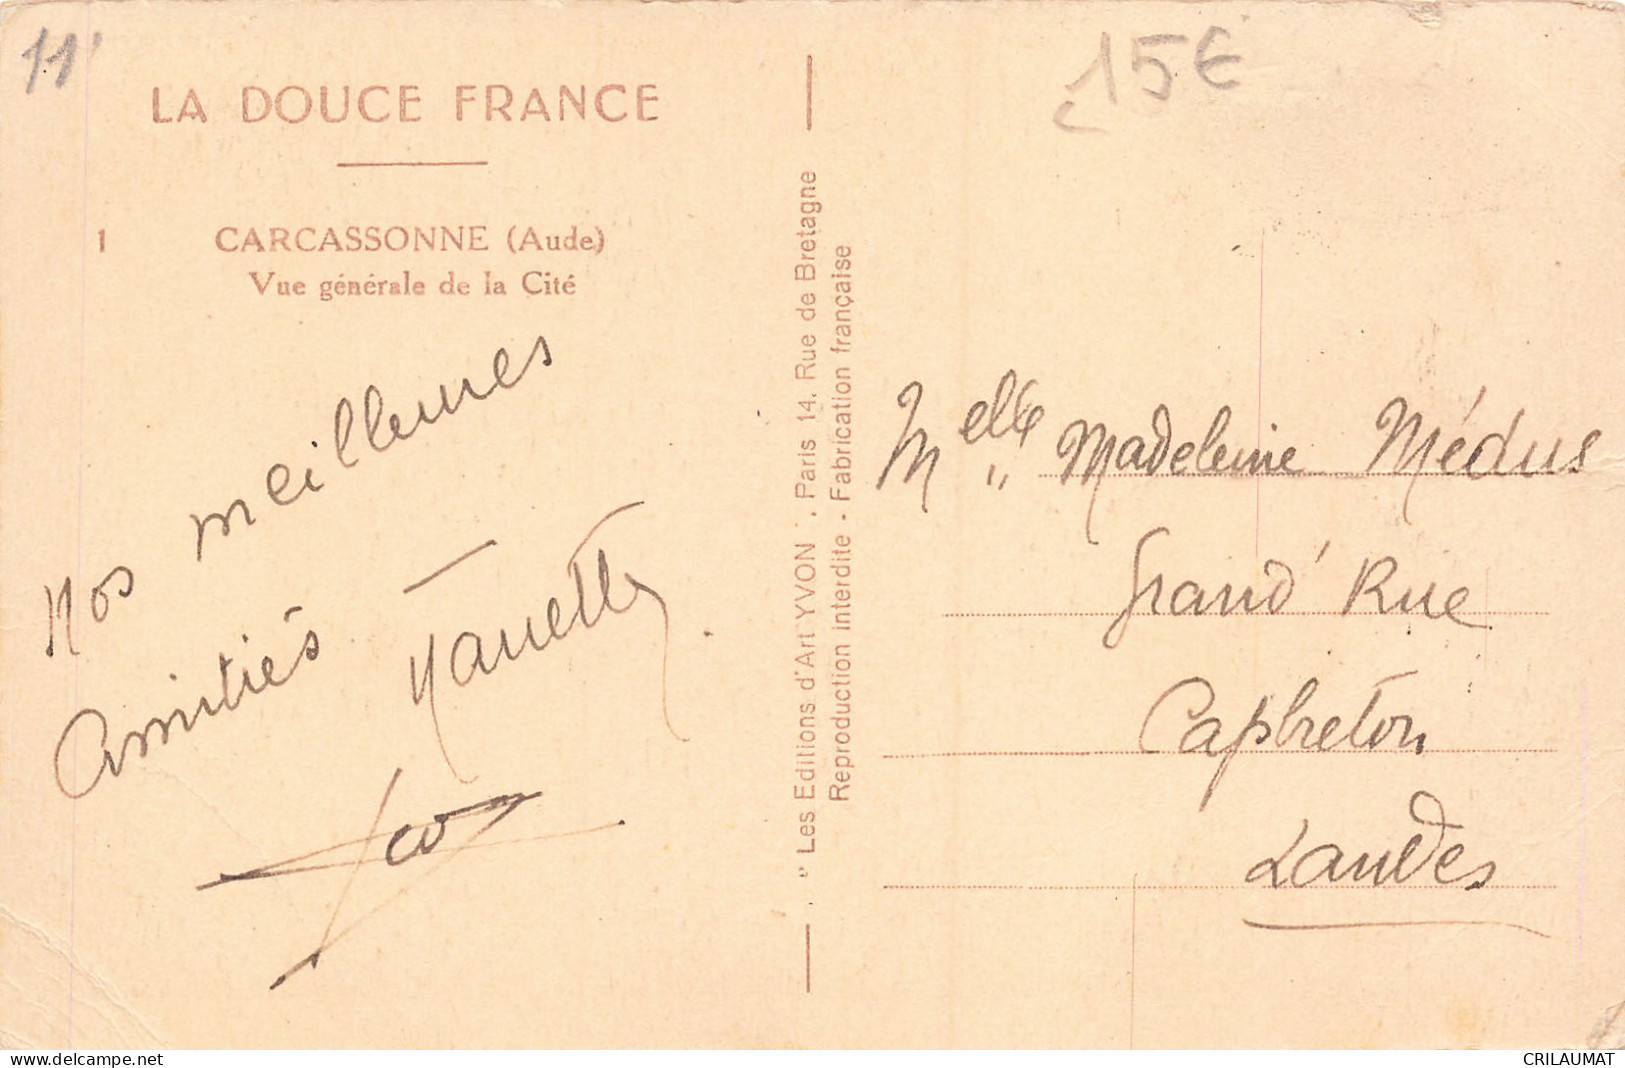 11
15€
LA DOUCE FRANCE
1 CARCASSONNE (Aude)
Vue générale de la Cité
Nos meilleures
amitiés
" Les Editions d'Art YVON . Paris 14, Rue de Bretagne
Reproduction interdite - Fabrication française
Melle Madeleine Médus
Grand' Rue
Capbreton
Landes
delcampe.net
CRILAUMAT